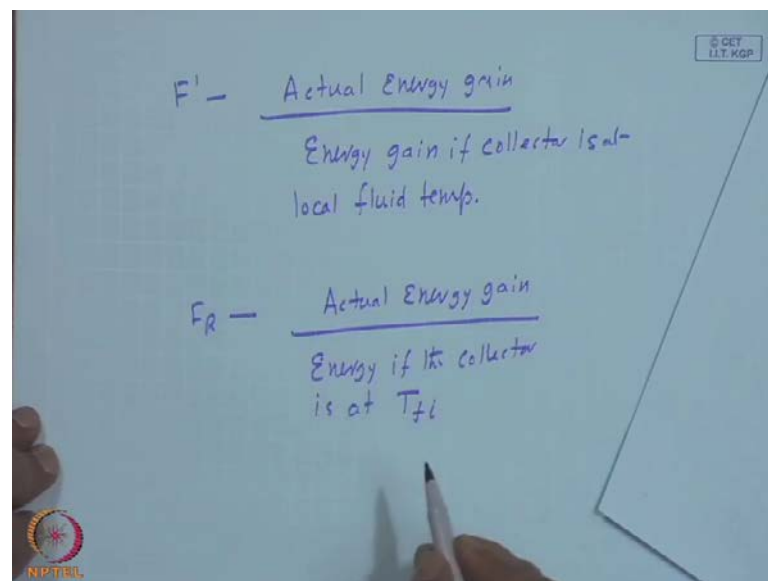 © CET
I.I.T. KGP
F' — Actual Energy gain
Energy gain if collector is at
local fluid temp.
F_R — Actual Energy gain
Energy if the collector
is at T_fi
NPTEL